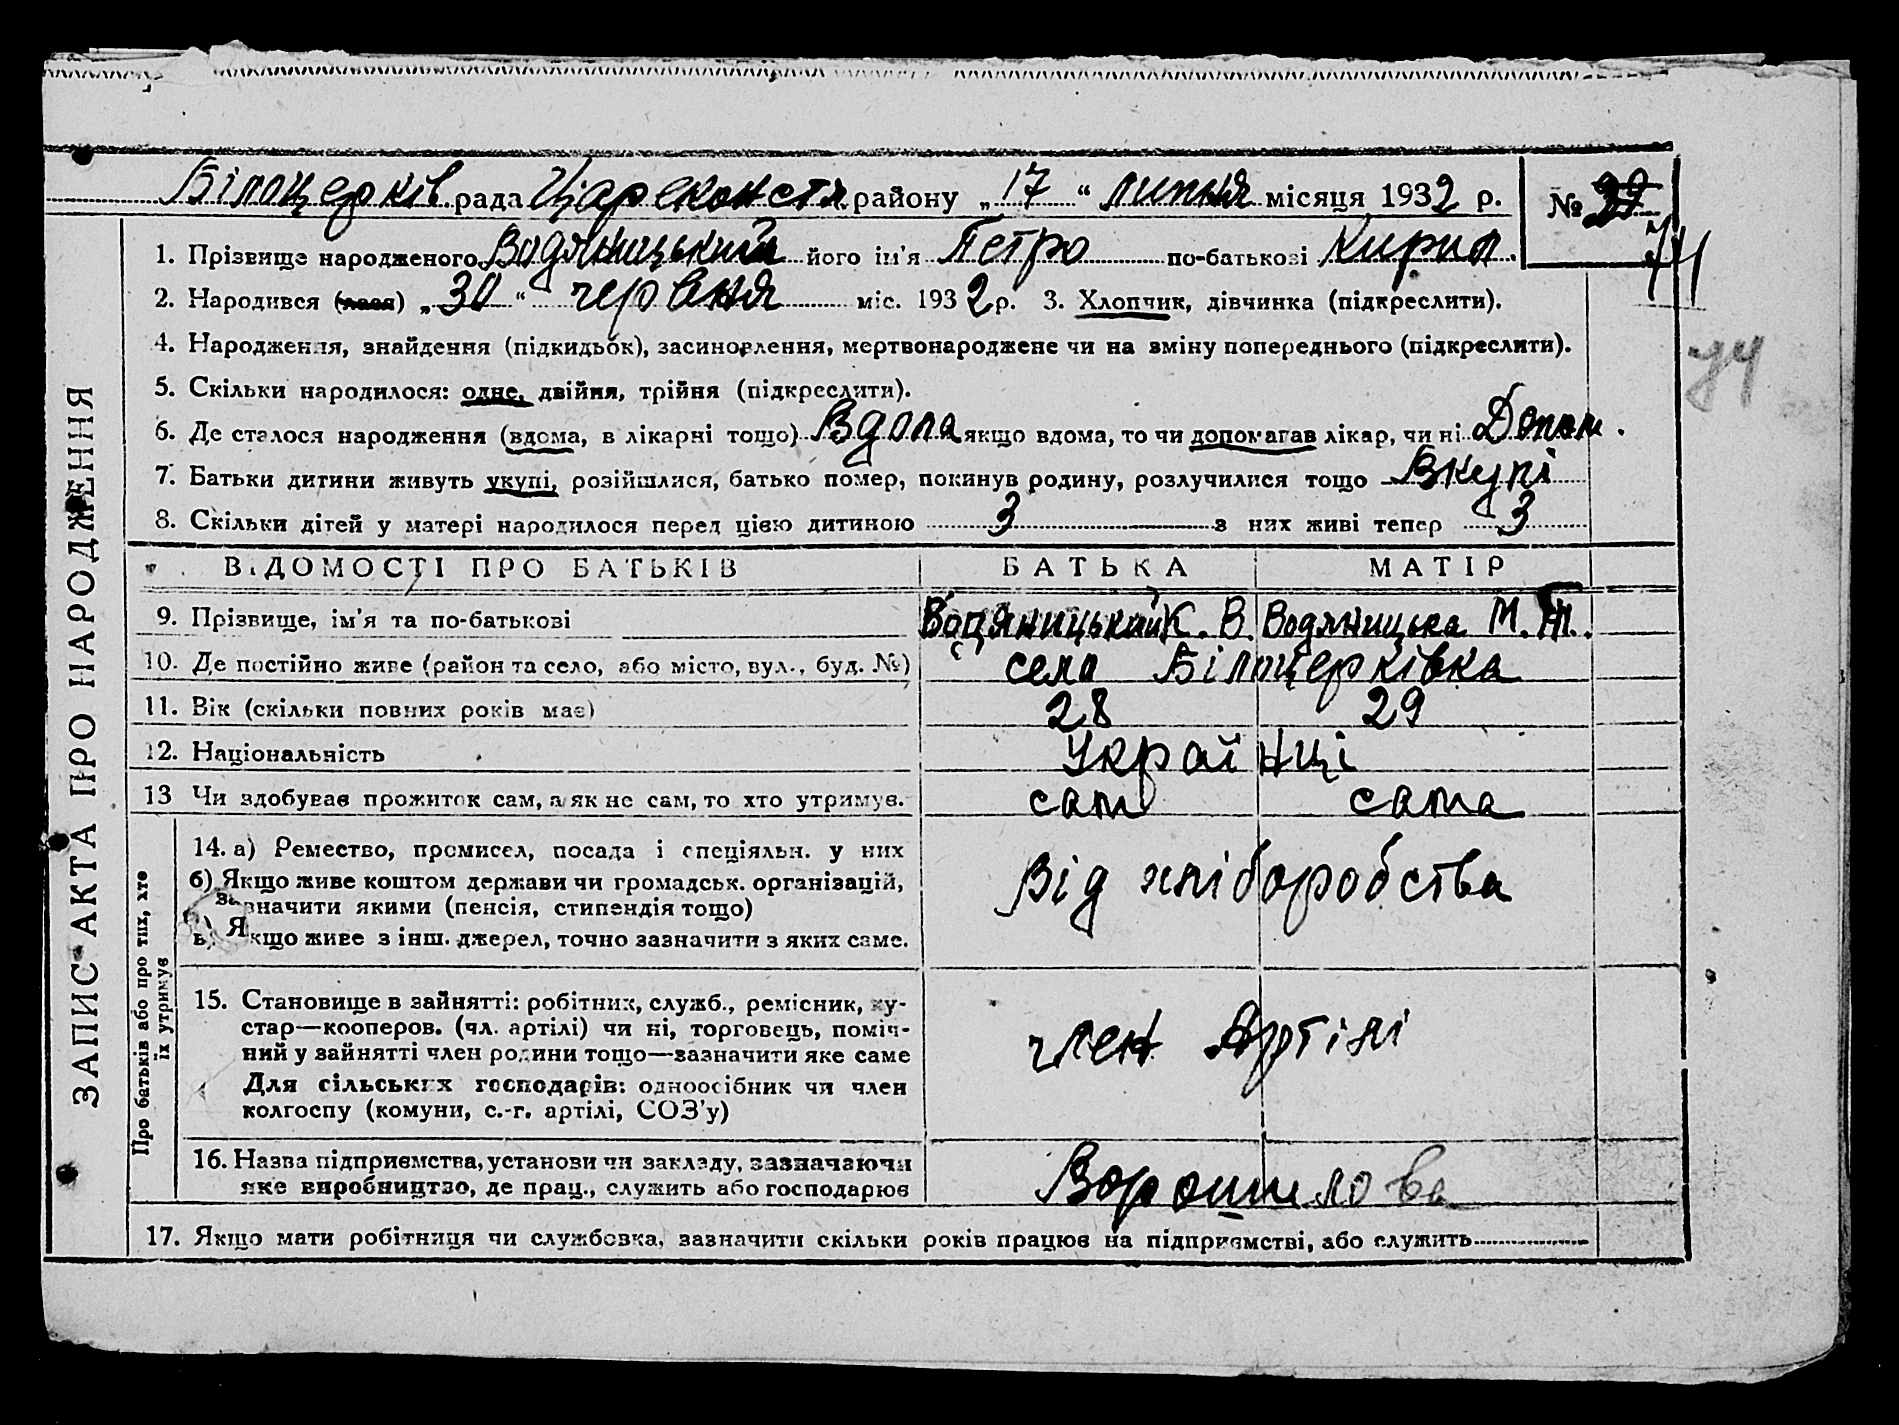 Білоцерків рада Царекостя району „17“ липня місяця 1932 р. №
44
1. Прізвище народженого Водяницький його ім'я Петро по-батькові Кирил.
2. Народився (лася) „30“ червня міс. 1932 р. 3. Хлопчик, дівчинка (підкреслити).
4. Народження, знайдення (підкидьок), засиновлення, мертвонароджене чи на зміну попереднього (підкреслити).
44
5. Скільки народилося: одне, двійня, трійня (підкреслити).
6. Де сталося народження (вдома, в лікарні тощо) Вдома якщо вдома, то чи допомагав лікар, чи ні Допом.
7. Батьки дитини живуть укупі, розійшлися, батько помер, покинув родину, розлучилися тощо Вкупі
8. Скільки дітей у матері народилося перед цією дитиною 3 з них живі тепер 3
ЗАПИС АКТА ПРО НАРОДЖЕННЯ
ВІДОМОСТІ ПРО БАТЬКІВ БАТЬКА МАТІР
9. Прізвище, ім'я та по-батькові Водяницький К. В. Водяницька М.
10. Де постійно живе (район та село, або місто, вул., буд. №) село Білоцерківка
11. Вік (скільки повних років має) 28 29
12. Національність Українці
13 Чи здобував прожиток сам, а як не сам, то хто утримув. сам сама
Про батьків або про тих, хто
їх утримує
14. а) Ремество, промисел, посада і спеціяльн. у них
б) Якщо живе коштом держави чи громадськ. організацій,
зазначити якими (пенсія, стипендія тощо)
в) Якщо живе з інш. джерел, точно зазначити з яких саме.
Від хліборобства
15. Становище в зайнятті: робітник, служб., ремісник, ку-
стар—кооперов. (чл. артілі) чи ні, торговець, поміч-
ний у зайнятті член родини тощо—зазначити яке саме
Для сільських господарів: одноосібник чи член
колгоспу (комуни, с.-г. артілі, СОЗ'у)
член Артілі
16. Назва підприємства, установи чи закладу, зазначаючи
яке виробництво, де прац., служить або господарює
Ворошилова
17. Якщо мати робітниця чи службовка, зазначити скільки років працює на підприємстві, або служить